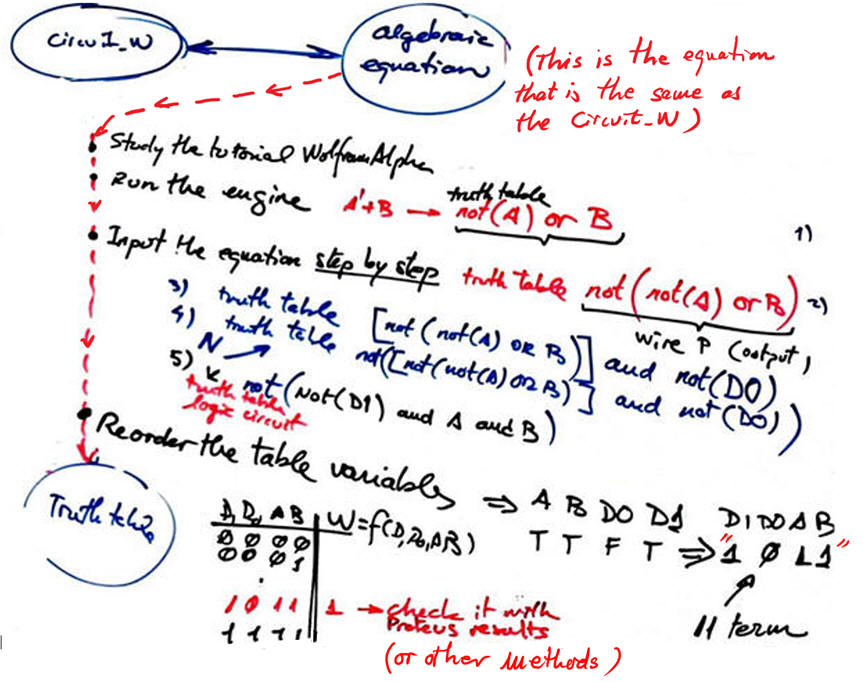 Circuit_W
algebraic
equation
(This is the equation
that is the same as
the Circuit_W)
• Study the tutorial WolframAlpha
• Run the engine A'+B → truth table not(A) or B 1)
• Input the equation step by step truth table not(not(A) or B) 2)
wire P (output)
3) truth table [not(not(A) OR B)] and not(D0)
4) truth table not([not(not(A) OR B)] and not(D0))
N
5) not(Not(D1) and A and B)
truth table
logic circuit
• Reorder the table variables ⇒ A B D0 D1 D1 D0 A B
T T F T ⇒ "1 0 1 1"
11 term
Truth table
D1 D0 A B W=f(D1,D0,A,B)
0 0 0 0
0 0 0 1
.
1 0 1 1 1 → check it with
Proteus results
1 1 1 1
(or other methods)